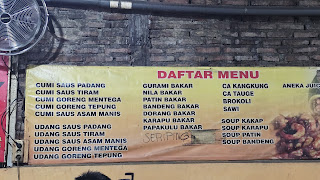 DAFTAR MENU
CUMI SAUS PADANG
CUMI SAUS TIRAM
CUMI GORENG MENTEGA
CUMI GORENG TEPUNG
CUMI SAUS ASAM MANIS
UDANG SAUS PADANG
UDANG SAUS TIRAM
UDANG SAUS ASAM MANIS
UDANG GORENG MENTEGA
UDANG GORENG TEPUNG
GURAMI BAKAR
NILA BAKAR
PATIN BAKAR
BANDENG BAKAR
DORANG BAKAR
KARAPU BAKAR
PAPAKULU BAKAR
CA KANGKUNG
CA TAUGE
BROKOLI
SAWI
SOUP KAKAP
SOUP KARAPU
SOUP PATIN
SOUP BANDENG
ANEKA